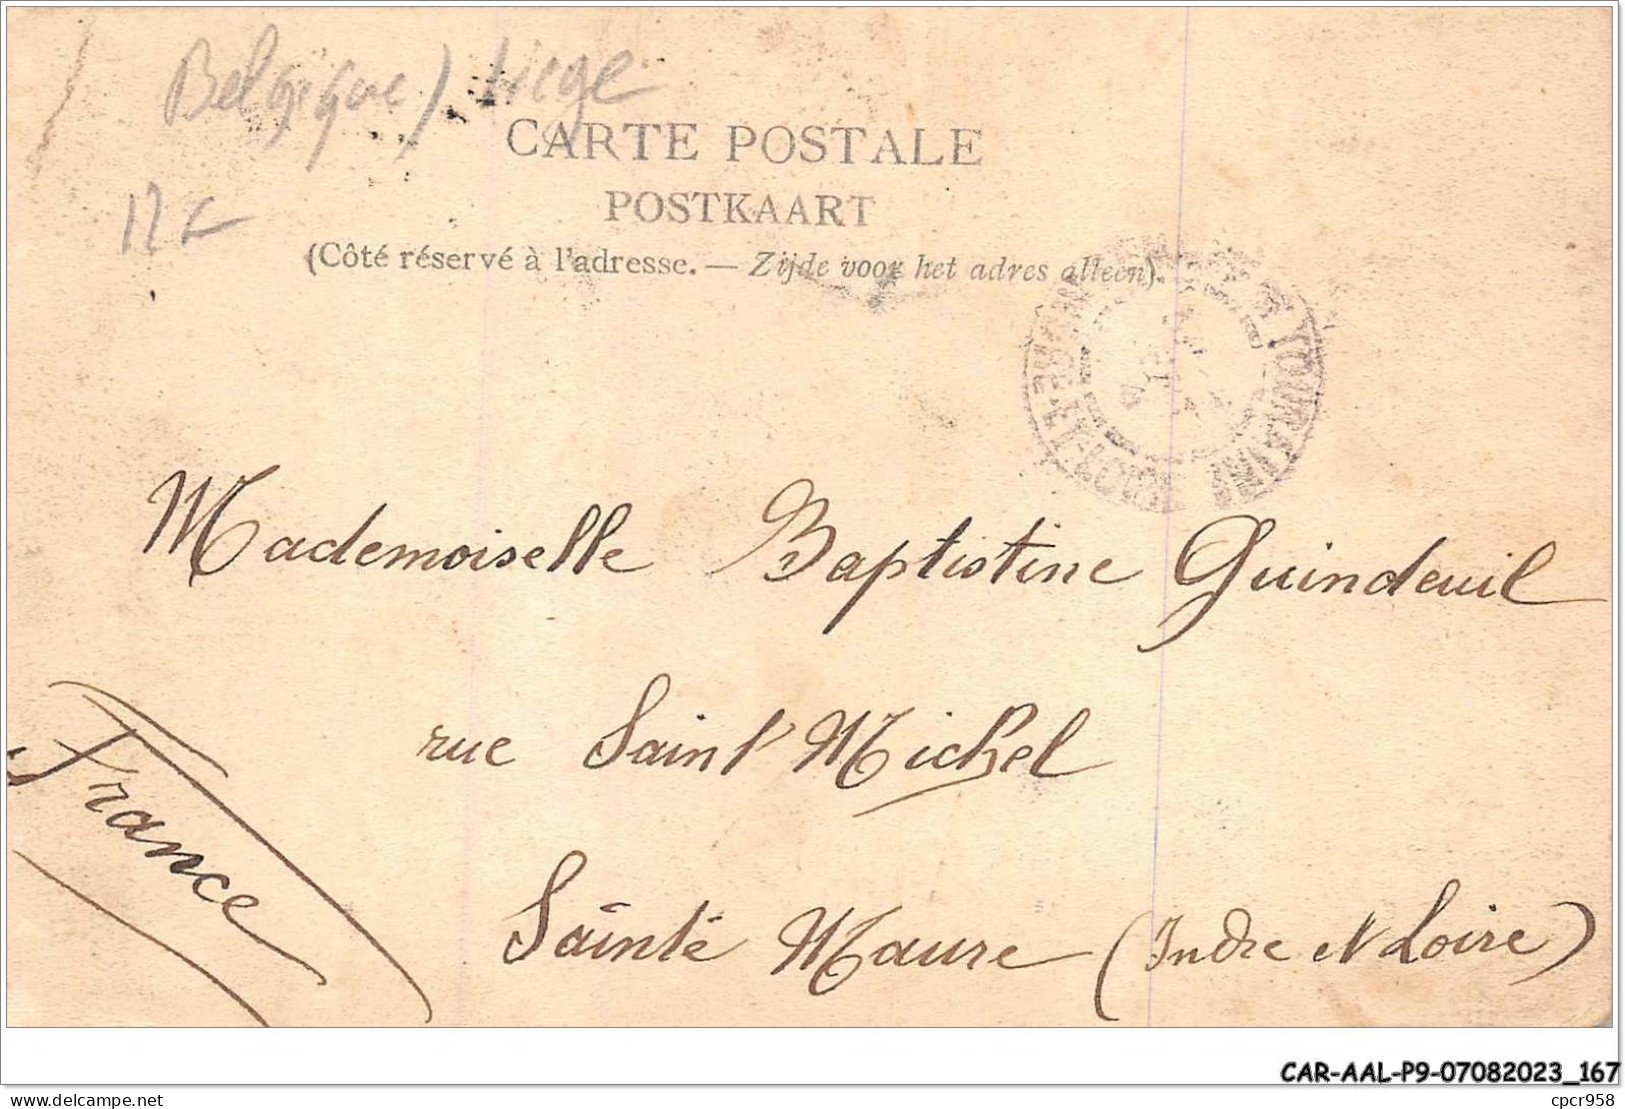 Belgique) Liege
CARTE POSTALE
POSTKAART
12
(Côté réservé à l'adresse. — Zijde voor het adres alleen).
TOURAINE
INDRE-ET-LOIRE
Mademoiselle Baptistine Guindeuil
rue Saint Michel
France
Sainte Maure (Indre et Loire)
CAR-AAL-P9-07082023_167
cpcr958